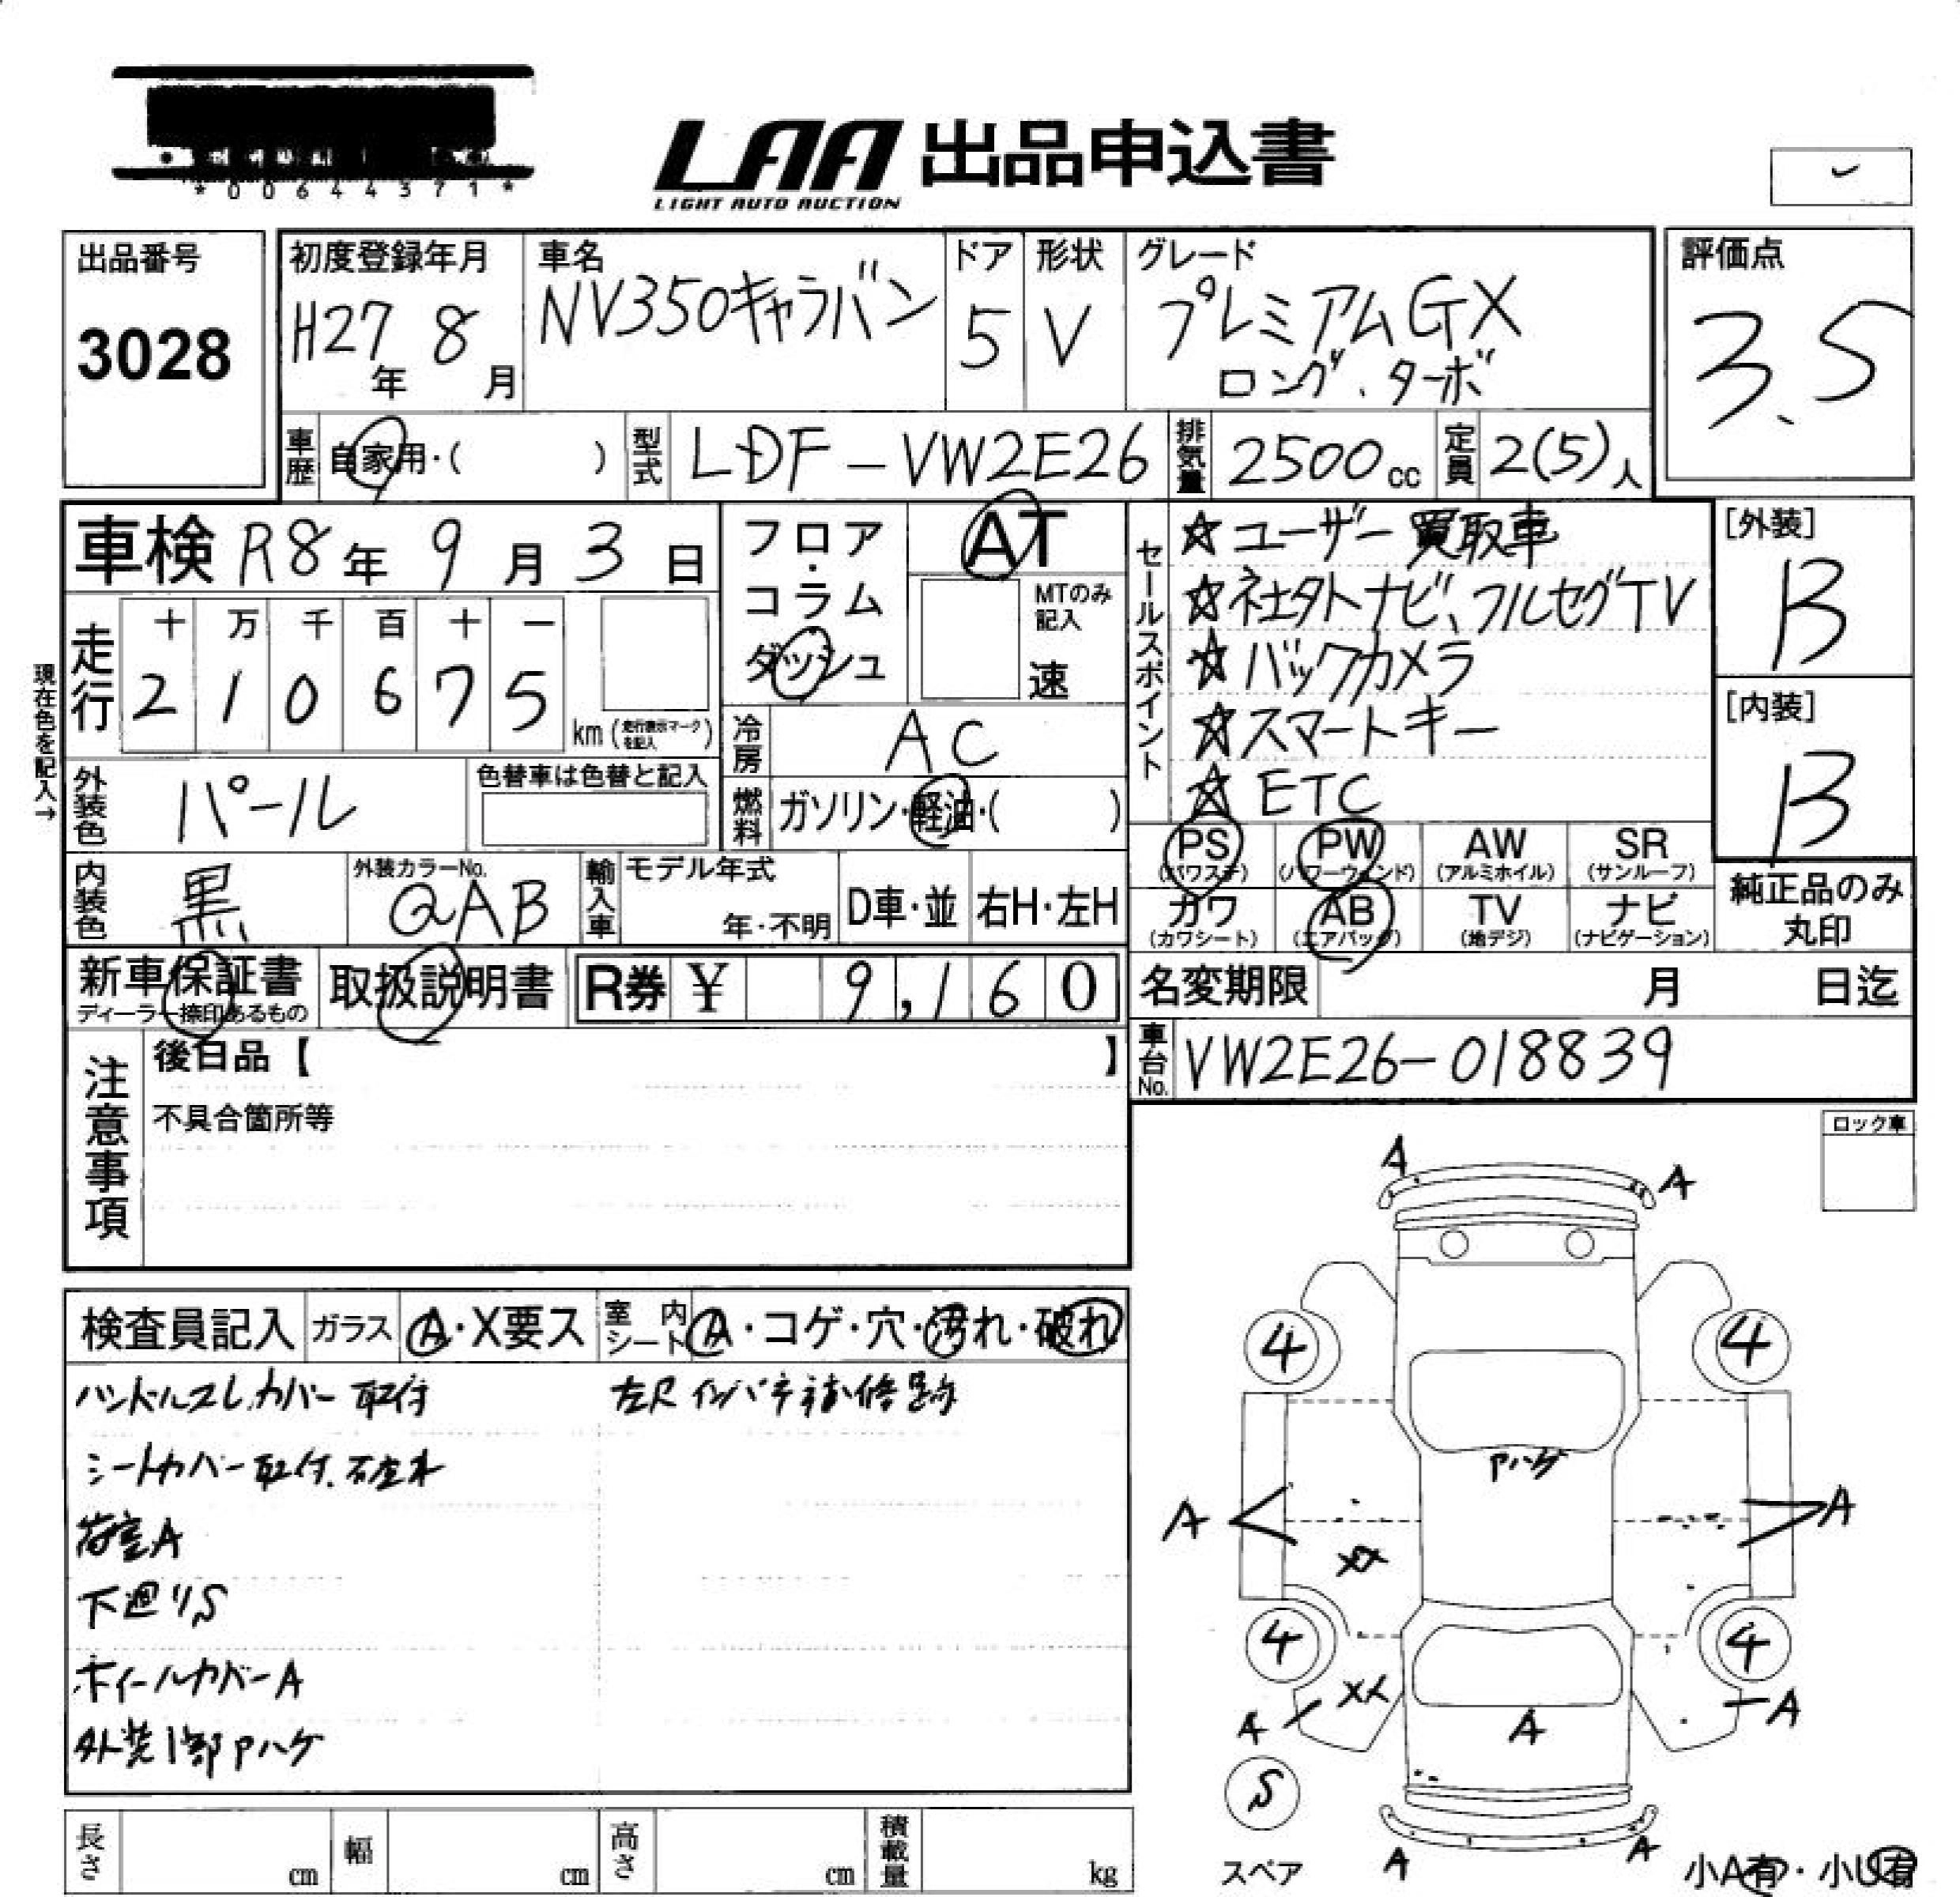 *00644371*
LAA 出品申込書
LIGHT AUTO AUCTION
出品番号
3028
初度登録年月
H27年 8月
車名
NV350キャラバン
ドア
5
形状
V
グレード
プレミアムGX
ロング、ターボ
評価点
3.5
車歴 自家用・( )
型式 LDF-VW2E26
排気量 2500cc
定員 2(5)人
車検 R8年 9月 3日
フロア・コラム
ダッシュ
AT
MTのみ記入
速
走行
十 万 千 百 十 一
2 1 0 6 7 5
km(走行表示マークを記入)
現在色を記入→
外装色 パール
色替車は色替と記入
冷房 AC
燃料 ガソリン・軽油・( )
内装色 黒
外装カラーNo.
QAB
輸入車
モデル年式
年・不明
D車・並
右H・左H
セールスポイント
☆ユーザー買取車
☆社外ナビ、フルセグTV
☆バックカメラ
☆スマートキー
☆ETC
[外装]
B
[内装]
B
PS (パワステ)
PW (パワーウインド)
AW (アルミホイル)
SR (サンルーフ)
カワ (カワシート)
AB (エアバッグ)
TV (地デジ)
ナビ (ナビゲーション)
純正品のみ
丸印
新車保証書
ディーラー捺印あるもの
取扱説明書
R券 ¥ 9,160
名変期限 月 日迄
注意事項
後日品【 】
不具合箇所等
車台No. VW2E26-018839
ロック車
検査員記入
ガラス A・X要ス
室内シート A・コゲ・穴・汚れ・破れ
ハンドルスレ.カバー取付
左Rインパネ補修跡
シートカバー取付.破れ
荷室A
下廻りS
ホイールカバーA
外装1部Pハゲ
A
A
4
4
Pハゲ
A
A
XX
4
4
XX
A
A
A
S
スペア
A
A
小A有・小U有
長さ cm
幅 cm
高さ cm
積載量 kg